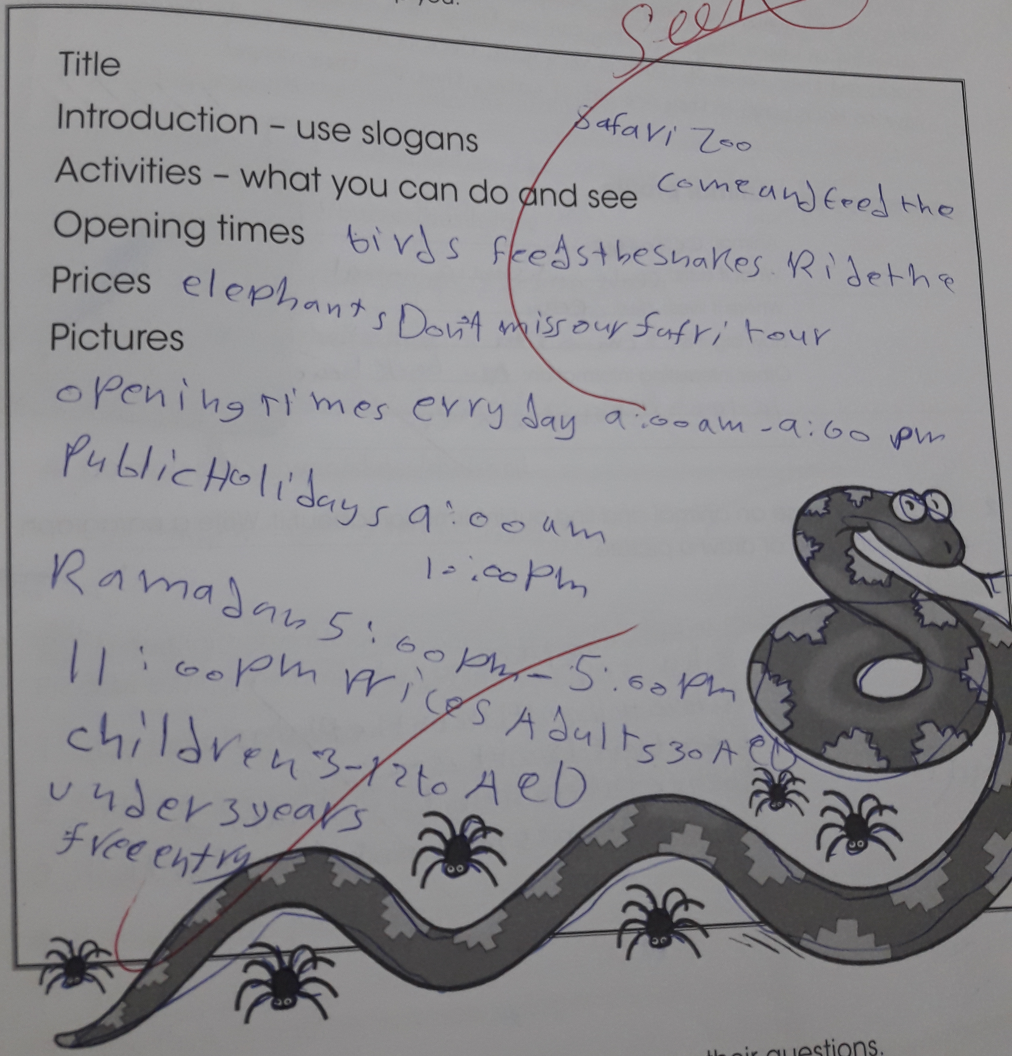 you.
Seen
Title
Introduction – use slogans
Safari Zoo
Activities – what you can do and see come and feed the
Opening times birds feeds the snakes Ride the
Prices elephants Don't miss our safri tour
Pictures
opening times erry day 9:00am - 9:00 pm
Public Holidays 9:00am
10:00pm
Ramadan 5:00pm - 5:00pm
11:00pm Prices Adults 30 AED
children 3-12 to AED
under 3 years
free entry
their questions.